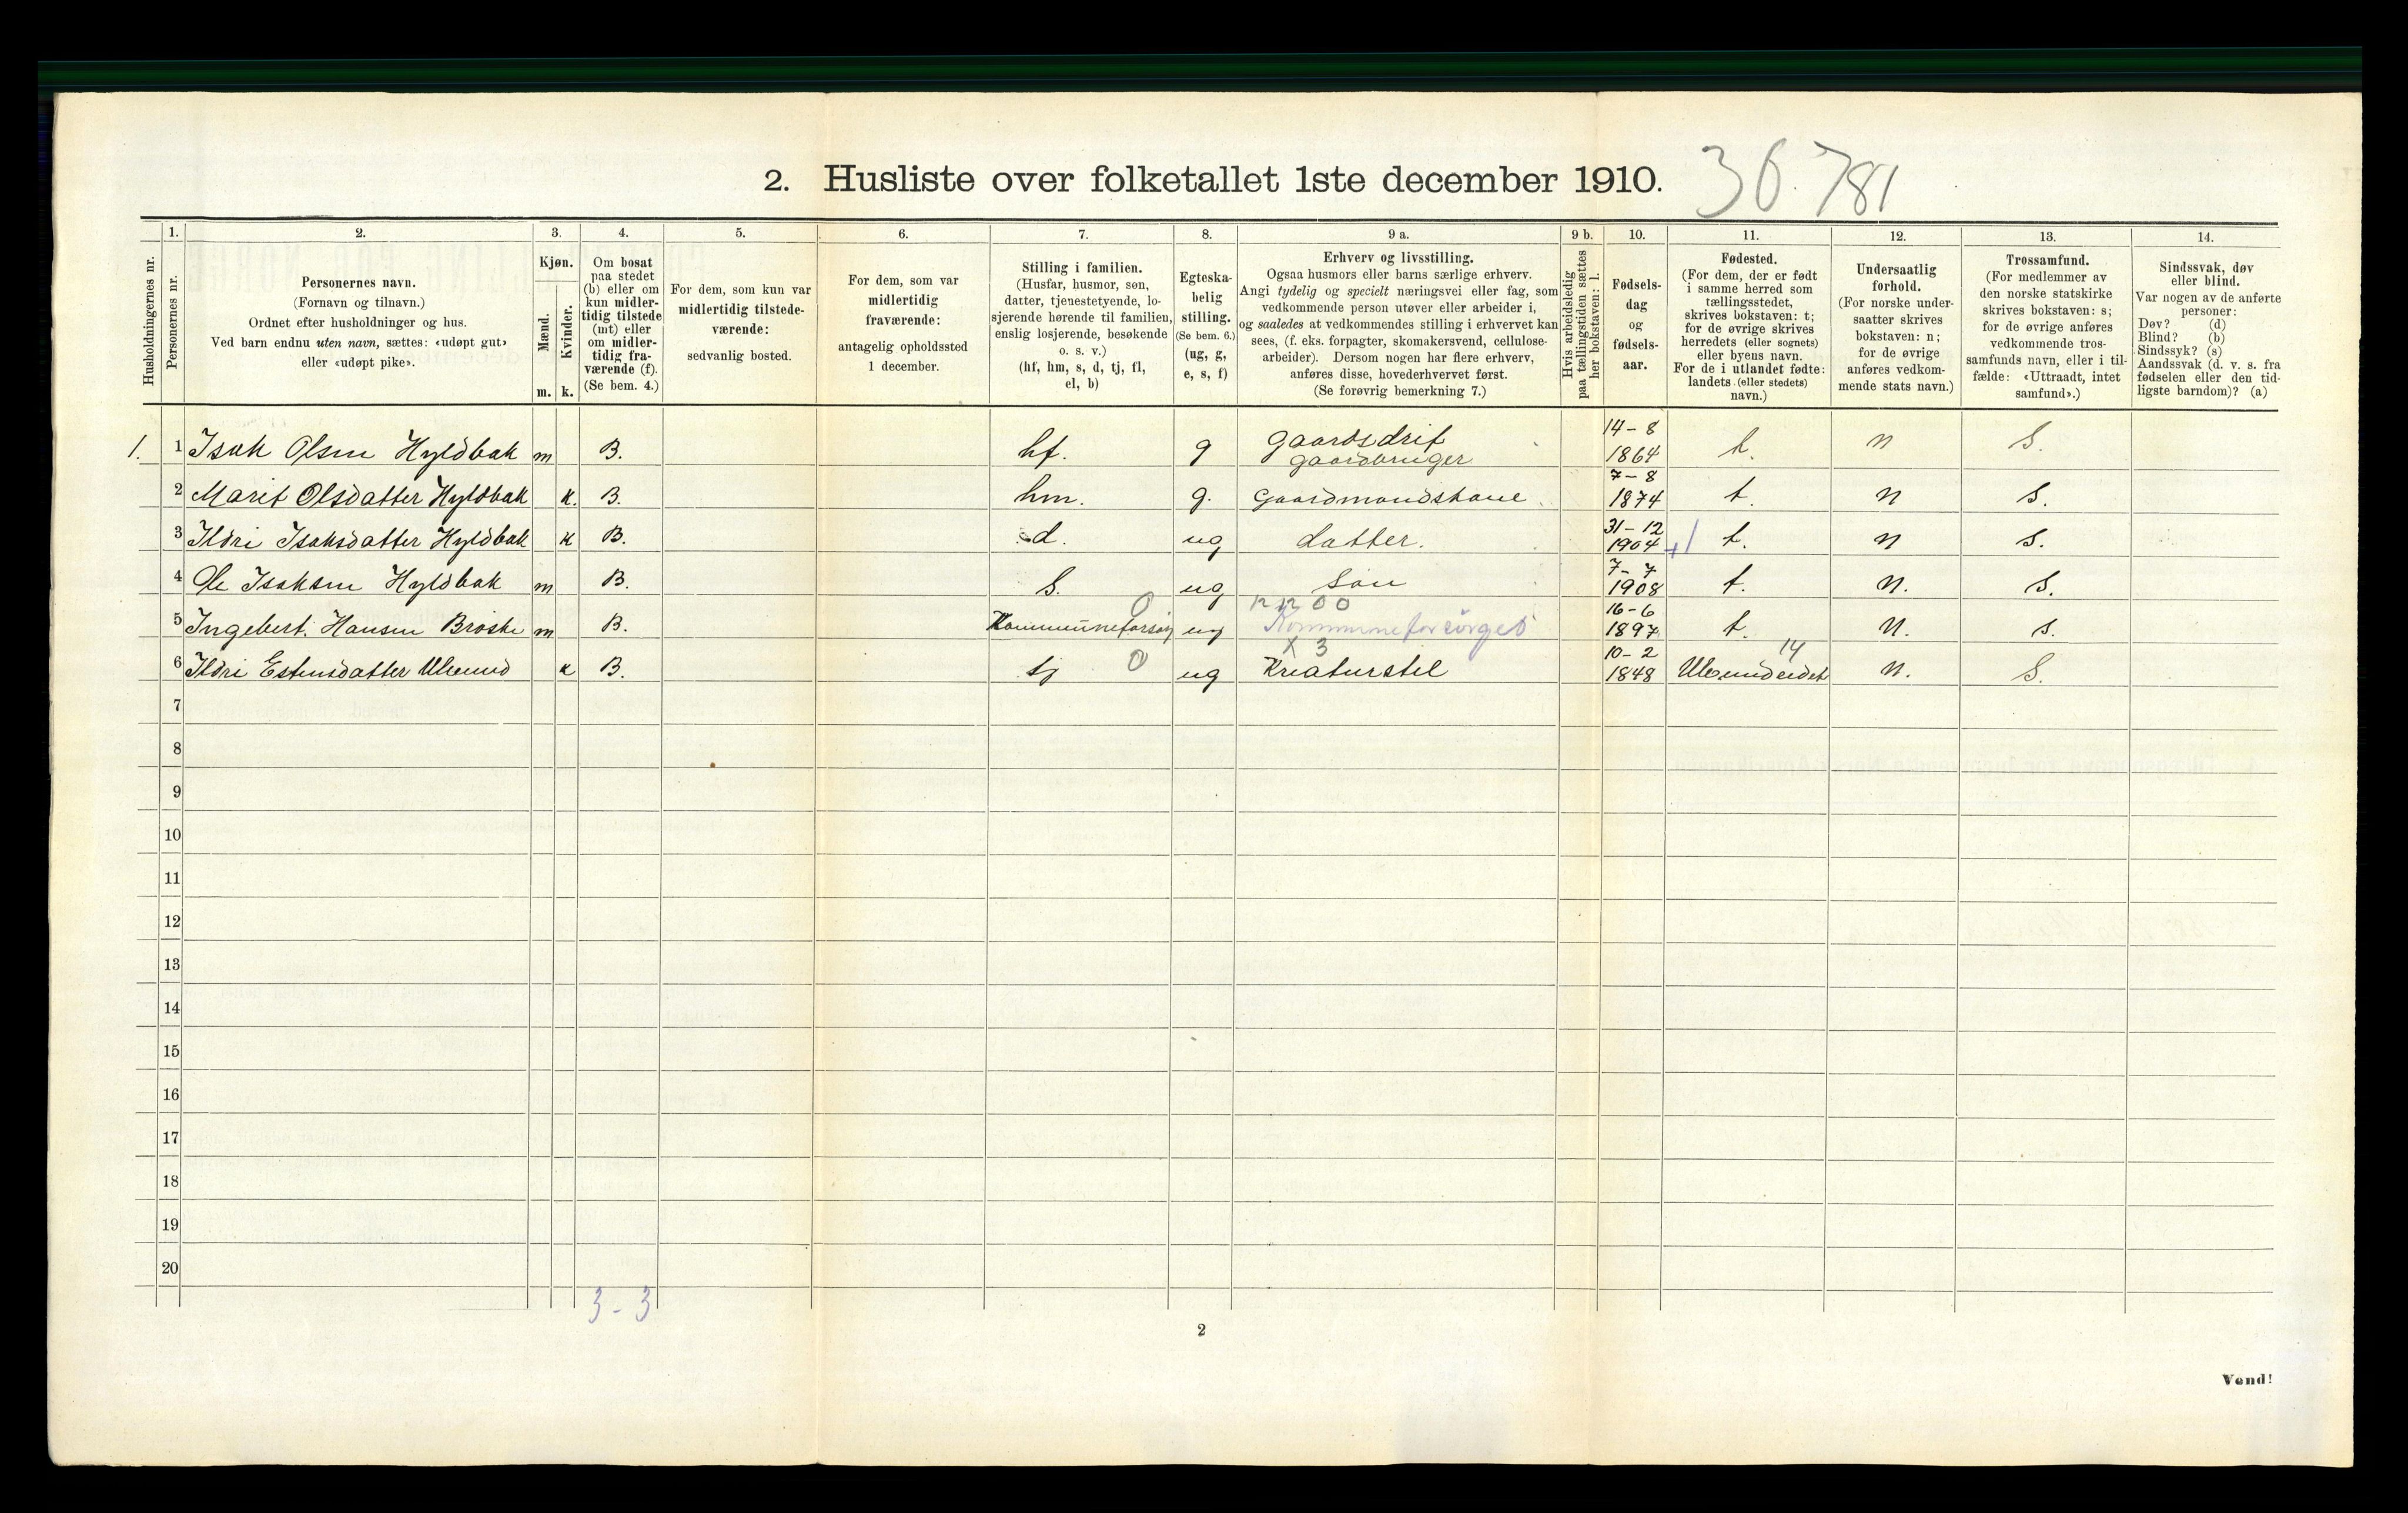 2. Husliste over folketallet 1ste december 1910. 36. 781
Husholdningernes nr.
1.
Personernes nr.
2.
Personernes navn.
(Fornavn og tilnavn.)
Ordnet efter husholdninger og hus.
Ved barn endnu uten navn, sættes: «udøpt gut»
eller «udøpt pike».
3.
Kjøn.
Mænd.
m.
Kvinder.
k.
4.
Om bosat
paa stedet
(b) eller om
kun midler-
tidig tilstede
(mt) eller
om midler-
tidig fra-
værende (f).
(Se bem. 4.)
5.
For dem, som kun var
midlertidig tilstede-
værende:
sedvanlig bosted.
6.
For dem, som var
midlertidig
fraværende:
antagelig opholdssted
1 december.
7.
Stilling i familien.
(Husfar, husmor, søn,
datter, tjenestetyende, lo-
sjerende hørende til familien,
enslig losjerende, besøkende
o. s. v.)
(hf, hm, s, d, tj, fl,
el, b)
8.
Egteska-
belig
stilling.
(Se bem. 6.)
(ug, g,
e, s, f)
9 a.
Erhverv og livsstilling.
Ogsaa husmors eller barns særlige erhverv.
Angi tydelig og specielt næringsvei eller fag, som
vedkommende person utøver eller arbeider i,
og saaledes at vedkommendes stilling i erhvervet kan
sees, (f. eks. forpagter, skomakersvend, cellulose-
arbeider). Dersom nogen har flere erhverv,
anføres disse, hovederhvervet først.
(Se forøvrig bemerkning 7.)
9 b.
Hvis arbeidsledig
paa tællingstiden sættes
her bokstaven: l.
10.
Fødsels-
dag
og
fødsels-
aar.
11.
Fødested.
(For dem, der er født
i samme herred som
tællingsstedet,
skrives bokstaven: t;
for de øvrige skrives
herredets (eller sognets)
eller byens navn.
For de i utlandet fødte:
landets (eller stedets)
navn.)
12.
Undersaatlig
forhold.
(For norske under-
saatter skrives
bokstaven: n;
for de øvrige
anføres vedkom-
mende stats navn.)
13.
Trossamfund.
(For medlemmer av
den norske statskirke
skrives bokstaven: s;
for de øvrige anføres
vedkommende tros-
samfunds navn, eller i til-
fælde: «Uttraadt, intet
samfund».)
14.
Sindssvak, døv
eller blind.
Var nogen av de anførte
personer:
Døv? (d)
Blind? (b)
Sindssyk? (s)
Aandssvak (d. v. s. fra
fødselen eller den tid-
ligste barndom)? (a)
1. 1 Isak Olsen Hyldbak m B. hf. g gaardsdrif gaardbruger 14-8 1864 t. n S.
2 Marit Olsdatter Hyldbak k. B. hm. g. Gaardmandskone 7-8 1874 t. n S.
3 Ildri Isaksdatter Hyldbak k B. d. ug datter. 31-12 1904 t. n S.
4 Ole Isaksen Hyldbak m B. S. ug Søn 7-7 1908 t. n. S.
5 Ingebert. Hansen Brøske m B. Kommuneforsörg 0 ug Kommuneforsörget 16-6 1897 t. N. S.
6 Ildri Estensdatter Ulvund k B. tj 0 ug X 3 Kreaturstel 10-2 1848 Ulvundeidet 14 n. S.
7
8
9
10
11
12
13
14
15
16
17
18
19
20
3-3
2
Vend!